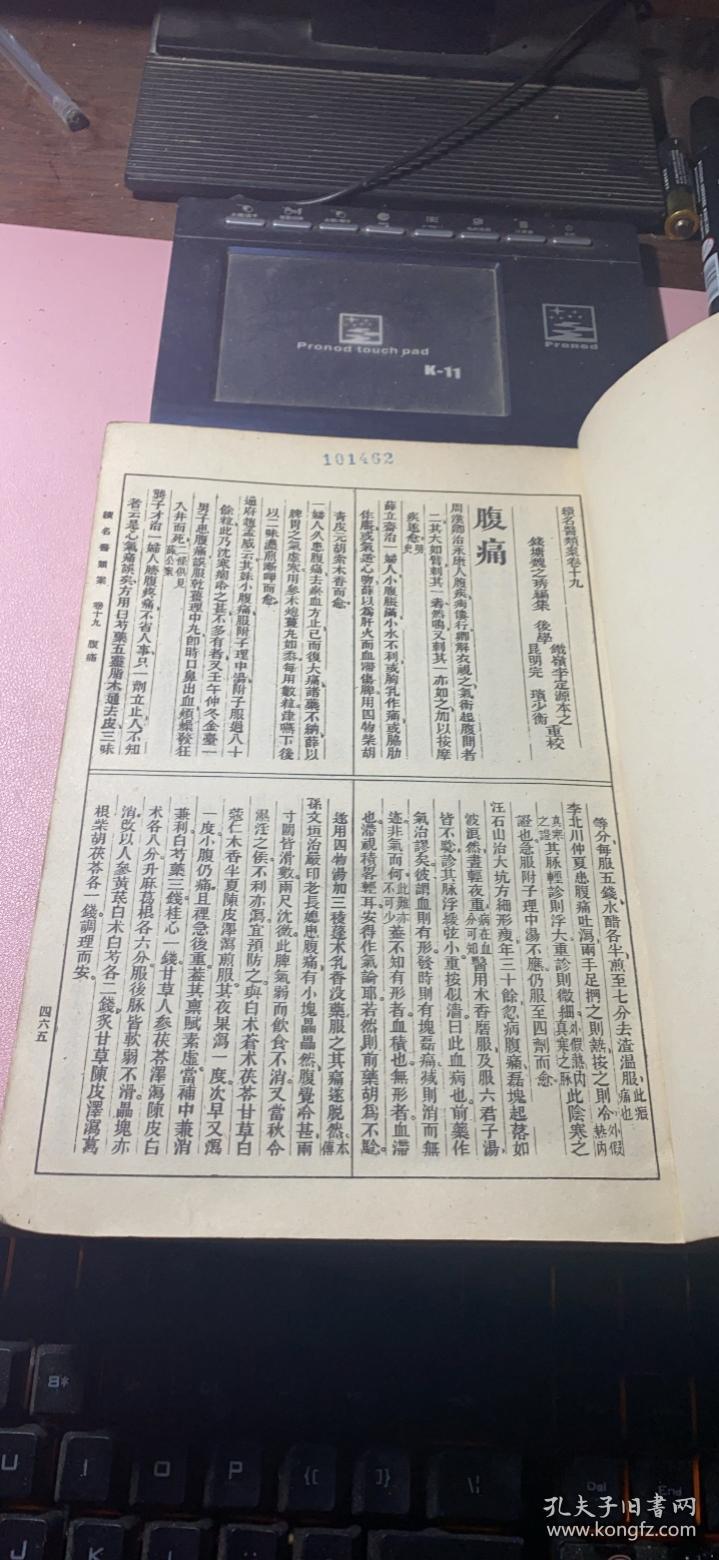 Pronod touch pad
K-11
Pronod
101462
續名醫類案卷十九
錢塘魏之琇編集
後學
鐵嶺李定源本之
昆明完 瑣少衡
重校
腹痛
周漢卿治永康人腹疾痀僂行卿解衣視之氣衝起腹間者
二其大如臂刺其一砉然鳴又刺其一亦如之加以按摩
疾遂愈
薛立齋治一婦人小腹脹滿小水不利或胸乳作痛或脇肋
作脹或氣逆心物薛以為肝火而血滯傷脾用四物柴胡
青皮元胡索木香而愈
一婦人久患腹痛去瘀血方止已而復大痛諸藥不納薛以
脾胃之氣虛寒用參朮炮薑丸如黍每用數粒津嚥下後
以二味濃煎漸呷而愈
通府趙孟威云其妹小腹痛服附子理中湯附子服過八十
餘粒此乃沈寒痼冷之甚不多有者又壬午仲冬金臺一
男子患腹痛誤服乾薑理中丸即時口鼻出血煩燥發狂
入井而死
龔子才治一婦人腸腹疼痛不省人事只一劑立止人不知
者云是心氣痛誤矣方用白芍藥五靈脂木通去皮三味
續名醫類案 卷十九 腹痛
等分每服五錢水醋各半煎至七分去渣溫服此瘕痛也
李北川仲夏患腹痛吐瀉兩手足捫之則熱按之則冷外假熱內
真寒之證其脉輕診則浮大重診則微細外假熱內真寒之脉此陰寒之
證也急服附子理中湯不應仍服至四劑而愈
汪石山治大坑方細形瘦年三十餘忽病腹痛磊塊起落如
波浪然晝輕夜重病在血分可知醫用木香磨服及服六君子湯
皆不驗診其脉浮緩弦小重按似濇曰此血病也前藥作
氣治謬矣彼謂血則有形發時則有塊磊痛減則消而無
迹非氣而何此難亦不可少蓋不知有形者血積也無形者血滯
也滯視積畧輕耳安得作氣論耶若然則前藥胡為不驗
遂用四物湯加三稜蓬朮乳香没藥服之其痛遂脱然本傳
孫文垣治嚴印老長媳患腹痛有小塊壘壘然腹覺冷甚兩
寸關皆滑數兩尺沈微此脾氣弱而飲食不消又當秋令
濕淫之侯不利亦瀉宜預防之與白朮蒼朮茯苓甘草白
蔻仁木香半夏陳皮澤瀉煎服其夜果瀉一度次早又瀉
一度小腹仍痛且裡急後重蓋其禀賦素虛當補中兼消
兼利白芍藥三錢桂心一錢甘草人參茯苓澤瀉陳皮白
朮各八分升麻葛根各六分服後脉皆軟弱不滑壘塊亦
消改以人參黃芪白朮白芍各二錢炙甘草陳皮澤瀉葛
根柴胡茯苓各一錢調理而安
四六五
8*
U
I
O
P
J
K
L
Del
End
孔夫子旧书网
www.kongfz.com